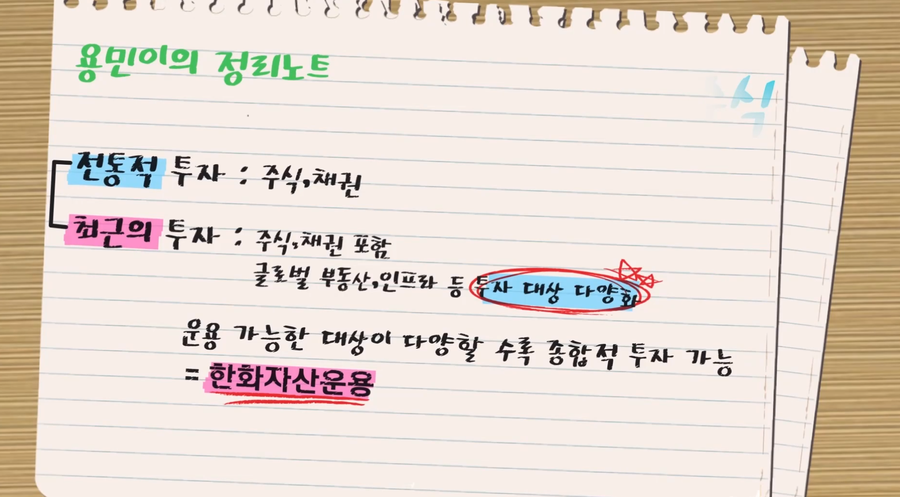 용민이의 정리노트
식
전통적 투자 : 주식,채권
최근의 투자 : 주식,채권 포함
글로벌 부동산,인프라 등 투자 대상 다양화
운용 가능한 대상이 다양할 수록 종합적 투자 가능
= 한화자산운용